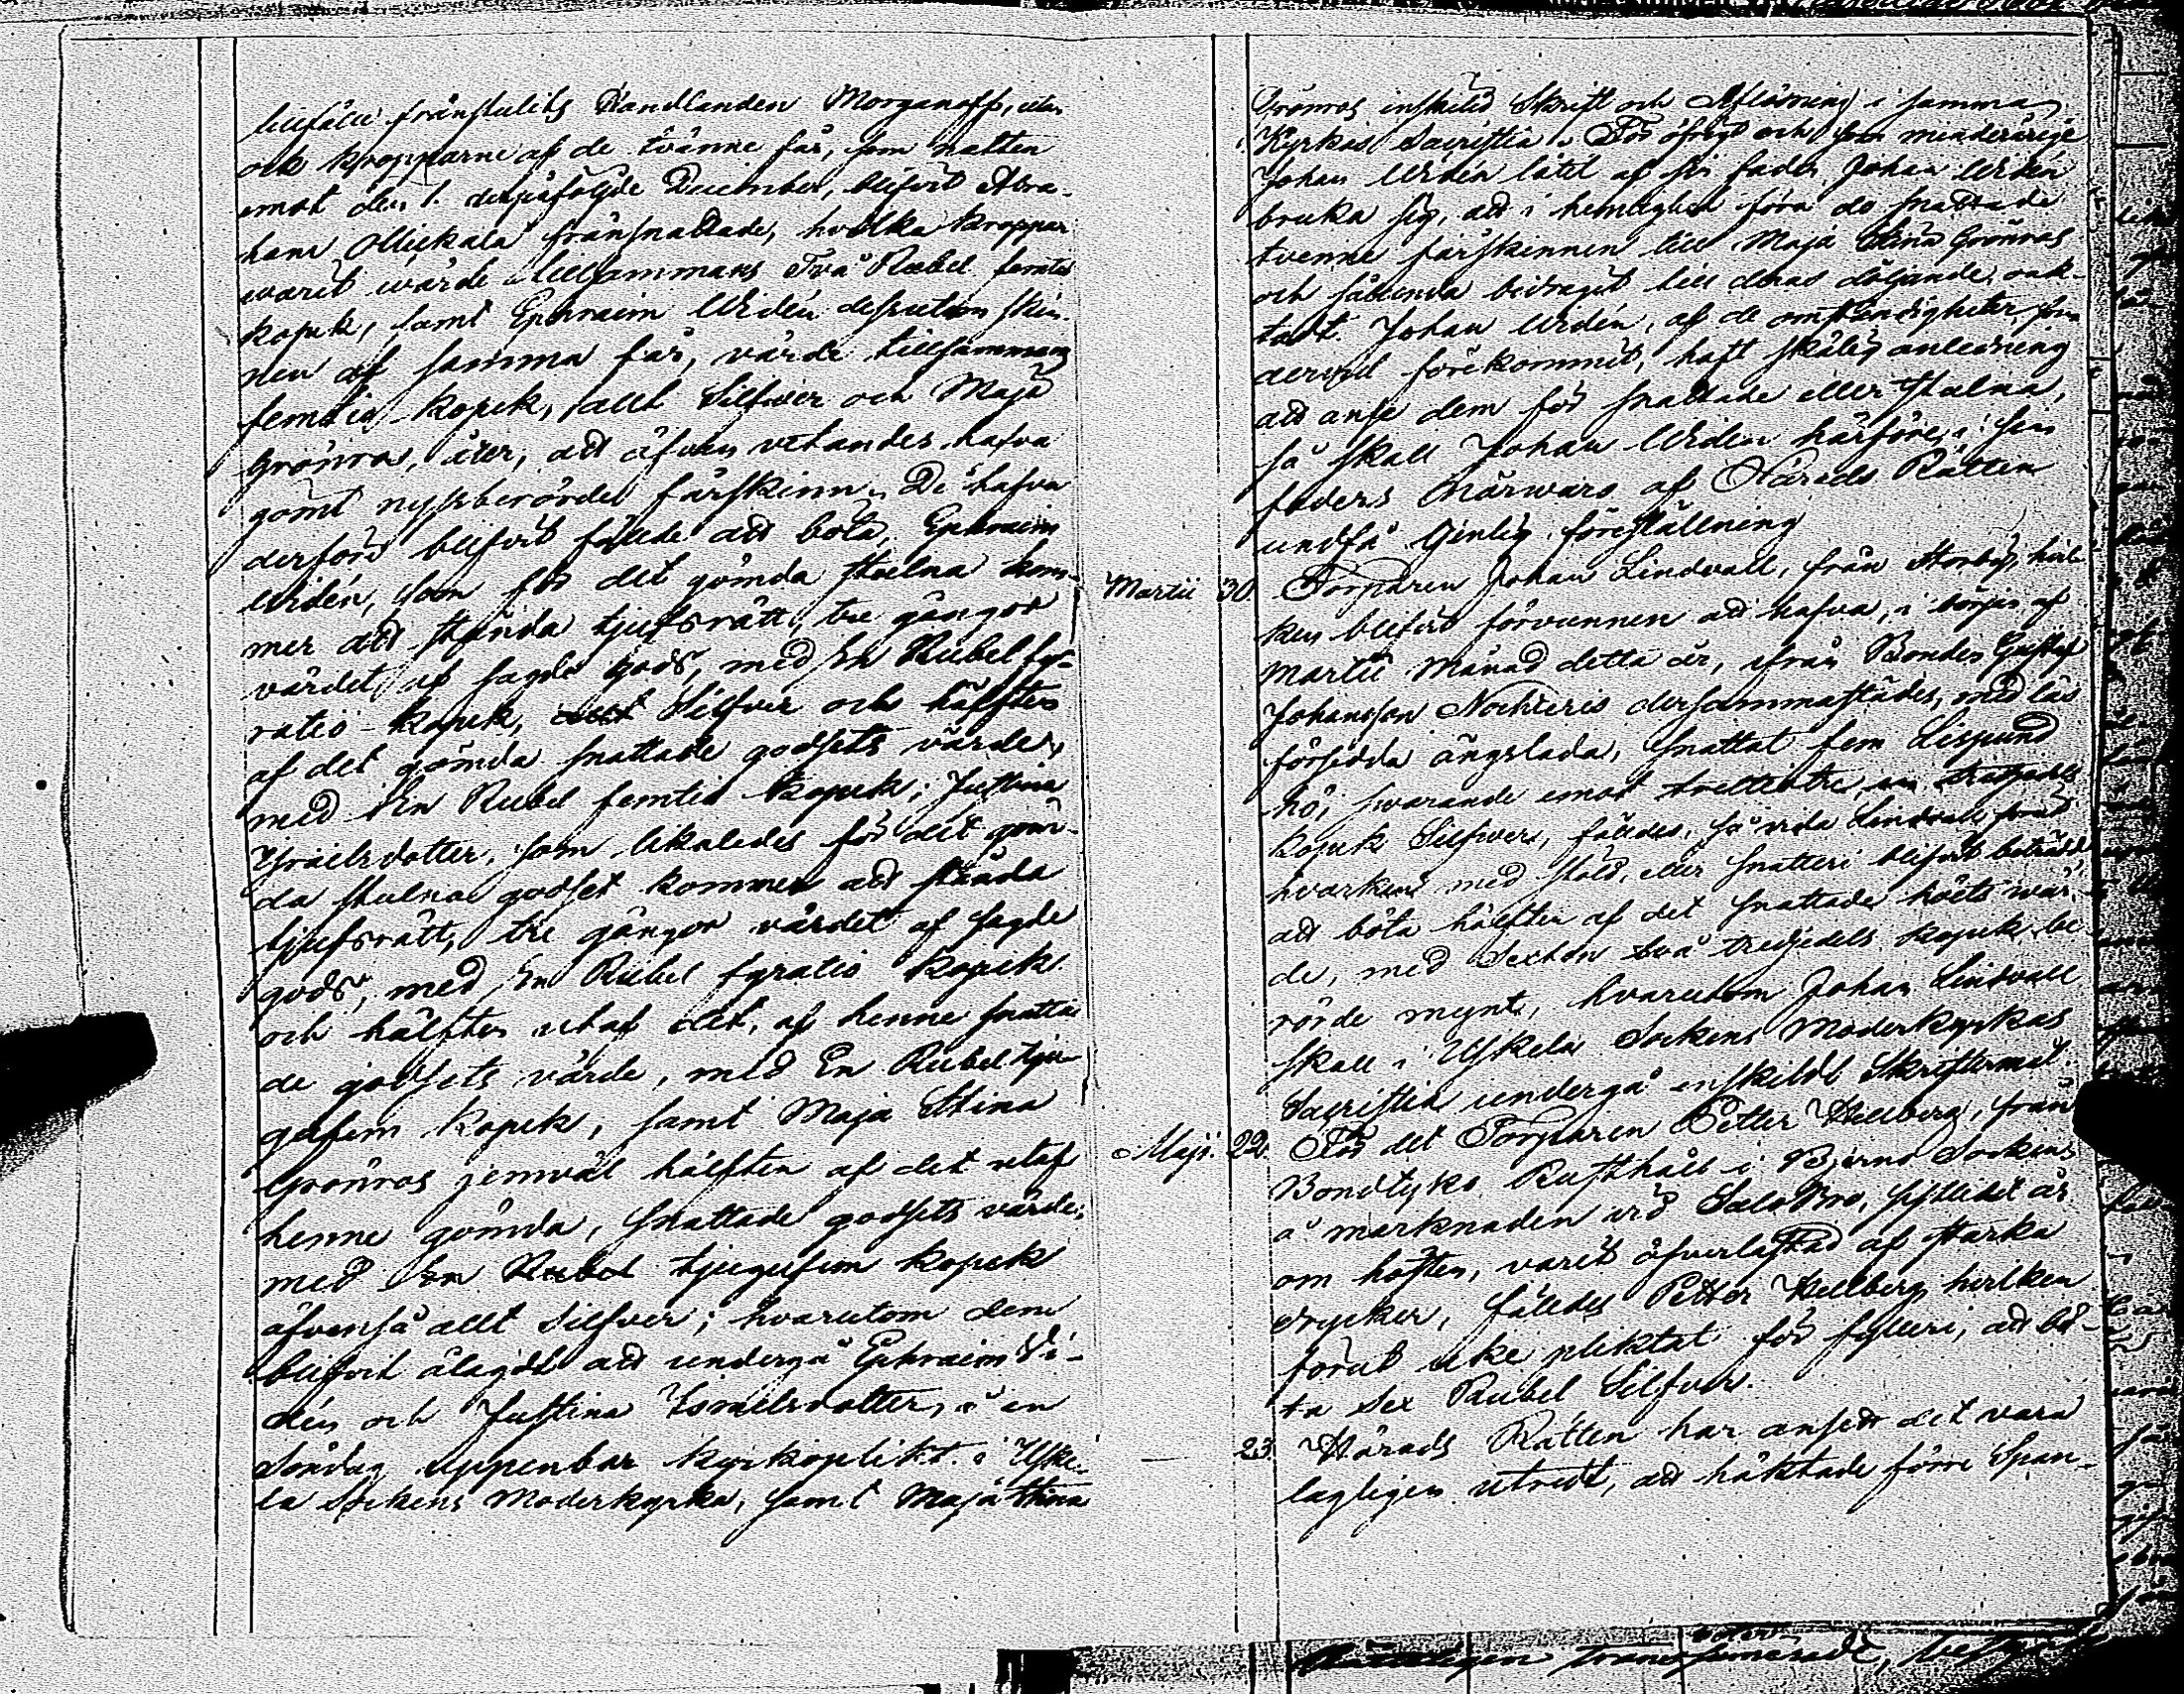 tillfälle frånstulits Handlanden Morganoff, utan
ock kropparne af de tvänne får, som natten
emot den 1. derpåföljde December, blifvit Abra-
ham Ollickala frånsnattade, hvilka kroppar
warit wärde tillsammans Två Rubel femtio
kopek, samt Ephraim Widén dessutom skin-
nen af samma får, värde tillsammans
femtio kopek, allt Silfver och Maja
Grönros, åter, att äfven vetandes hafva
gömt nyssberörde fårskinn. De hafva
derföre blifvit fällde att böta, Ephraim
Widén, som för det gömda stulna kom-
mer att stånda tjufsrätt, tre gångor
värdet af sagde gods, med En Rubel fy-
ratio kopek, Silfver och hälften
af det gömda snattade godsets värde,
med En Rubel femtio kopek; Justina
Israelsdotter, som likaledes för det göm-
da stulna godset kommer att stånda
tjufsrätt, tre gångor värdet af sagde
gods, med En Rubel fyratio kopek
och hälften utaf det, af henne snatta-
de godsets värde, med En Rubel tju-
gefem kopek, samt Maja Stina
Grönros jemväl hälften af det utaf
henne gömda, snattade godsets värde,
med tjugufem kopek
äfvenså allt Silfver; hvarutom dem
blifvit ålagdt att undergå Ephraim Vi-
dén och Justina Israelsdotter, å en
Söndag uppenbar kyrkoplikt i Uske-
la Sockens Moderkyrka, samt Maja Stina
Grönros enskild Skrift och Aflösning i samma
Kyrkas Sacristia. För öfrigt och som minderårige
Johan Widén låtit af sin fader Johan Widén
bruka sig, att i hemlighet föra de snattade
tvenne fårskinnen till Maja Stina Grönros
och sålunda bidragit till deras döljande, och
Johan Widén, af de omständigheter som
dervid förekommit, haft skälig anledning
att anse dem för snattade eller stulna,
så skall Johan Widén härföre, i sin
faders närwaro af Härads Rätten
undfå tjenlig föreställning
Martii 30. Torparen Johan Lindvall, från Storby, hvil-
ken blifvit förvunnen att hafva, i början af
Martii Månad detta år, ifrån Bonden Gustaf
Johansson Nochteris dersammastädes, med lås
försedda ängslada, snattat fem Lispund
hö, swarande emot trettiotre en tredjedels
kopek Silfver, fälldes, så vida Lindvall förut
hvarken med stöld, eller snatteri blifvit beträdd,
att böta hälften af det snattade höets wär-
de, med Sexton två tredjedels kopek be-
rörde mynt, hvarutom Johan Lindvall
skall i Uskela Sockens Moderkyrkas
Sacristia undergå enskildt Skriftermål.
Maji. 22. För det Torparen Petter Hellberg, från
Bondtyko Rusthåll i Bjerno Sockens
å marknaden vid Salo Bro, sistlidet år
om hösten, varit öfverlastad af starka
drycker, fälldes Petter Hellberg, hvilken
förut icke pliktat för fylleri, att bö-
ta Sex Rubel Silfver.
— 23. Härads Rätten har ansedt det vara
lagligen utredt, att häktade förre Span-